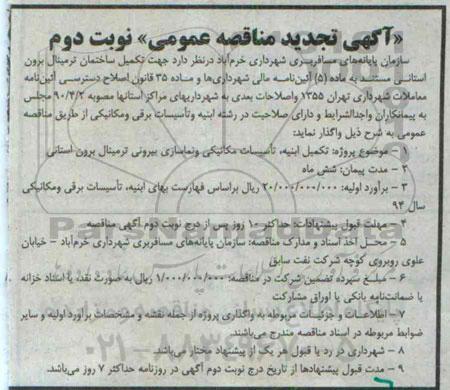 «آگهی تجدید مناقصه عمومی» نوبت دوم
سازمان پایانه‌های مسافربری شهرداری خرم‌آباد درنظر دارد جهت تکمیل ساختمان ترمینال برون
استانی مستند به ماده (۵) آئین‌نامه مالی شهرداری‌ها و ماده ۳۵ قانون اصلاح دسترسی آئین‌نامه
معاملات شهرداری تهران ۱۳۵۵ واصلاحات بعدی به شهرداریهای مراکز استانها مصوبه ۹۰/۴/۲ مجلس
به پیمانکاران واجدالشرایط و دارای صلاحیت در رشته ابنیه وتأسیسات برقی ومکانیکی از طریق مناقصه
عمومی به شرح ذیل واگذار نماید:
۱ – موضوع پروژه: تکمیل ابنیه، تأسیسات مکانیکی ونماسازی بیرونی ترمینال برون استانی
۲ – مدت پیمان: شش ماه
۳ – برآورد اولیه: ۲۰/۰۰۰/۰۰۰/۰۰۰ ریال براساس فهارست بهای ابنیه، تأسیسات برقی ومکانیکی
سال ۹۴
۴ – مهلت قبول پیشنهادات: حداکثر ۱۰ روز پس از درج نوبت دوم آگهی مناقصه
۵ – محل اخذ اسناد و مدارک مناقصه: سازمان پایانه‌های مسافربری شهرداری خرم‌آباد – خیابان
علوی روبروی کوچه شرکت نفت سابق
۶ – مبلغ سپرده تضمین شرکت در مناقصه: ۱/۰۰۰/۰۰۰/۰۰۰ ریال به صورت نقد یا اسناد خزانه
یا ضمانت‌نامه بانکی یا اوراق مشارکت
۷ – اطلاعات و جزئیات مربوطه به واگذاری پروژه از جمله نقشه و مشخصات برآورد اولیه و سایر
ضوابط مربوطه در اسناد مناقصه مندرج می‌باشند.
۸ – شهرداری در رد یا قبول هر یک از پیشنهاد مختار می‌باشد.
۹ – مدت قبول پیشنهادها از تاریخ درج نوبت دوم آگهی در روزنامه حداکثر ۷ روز می‌باشد.